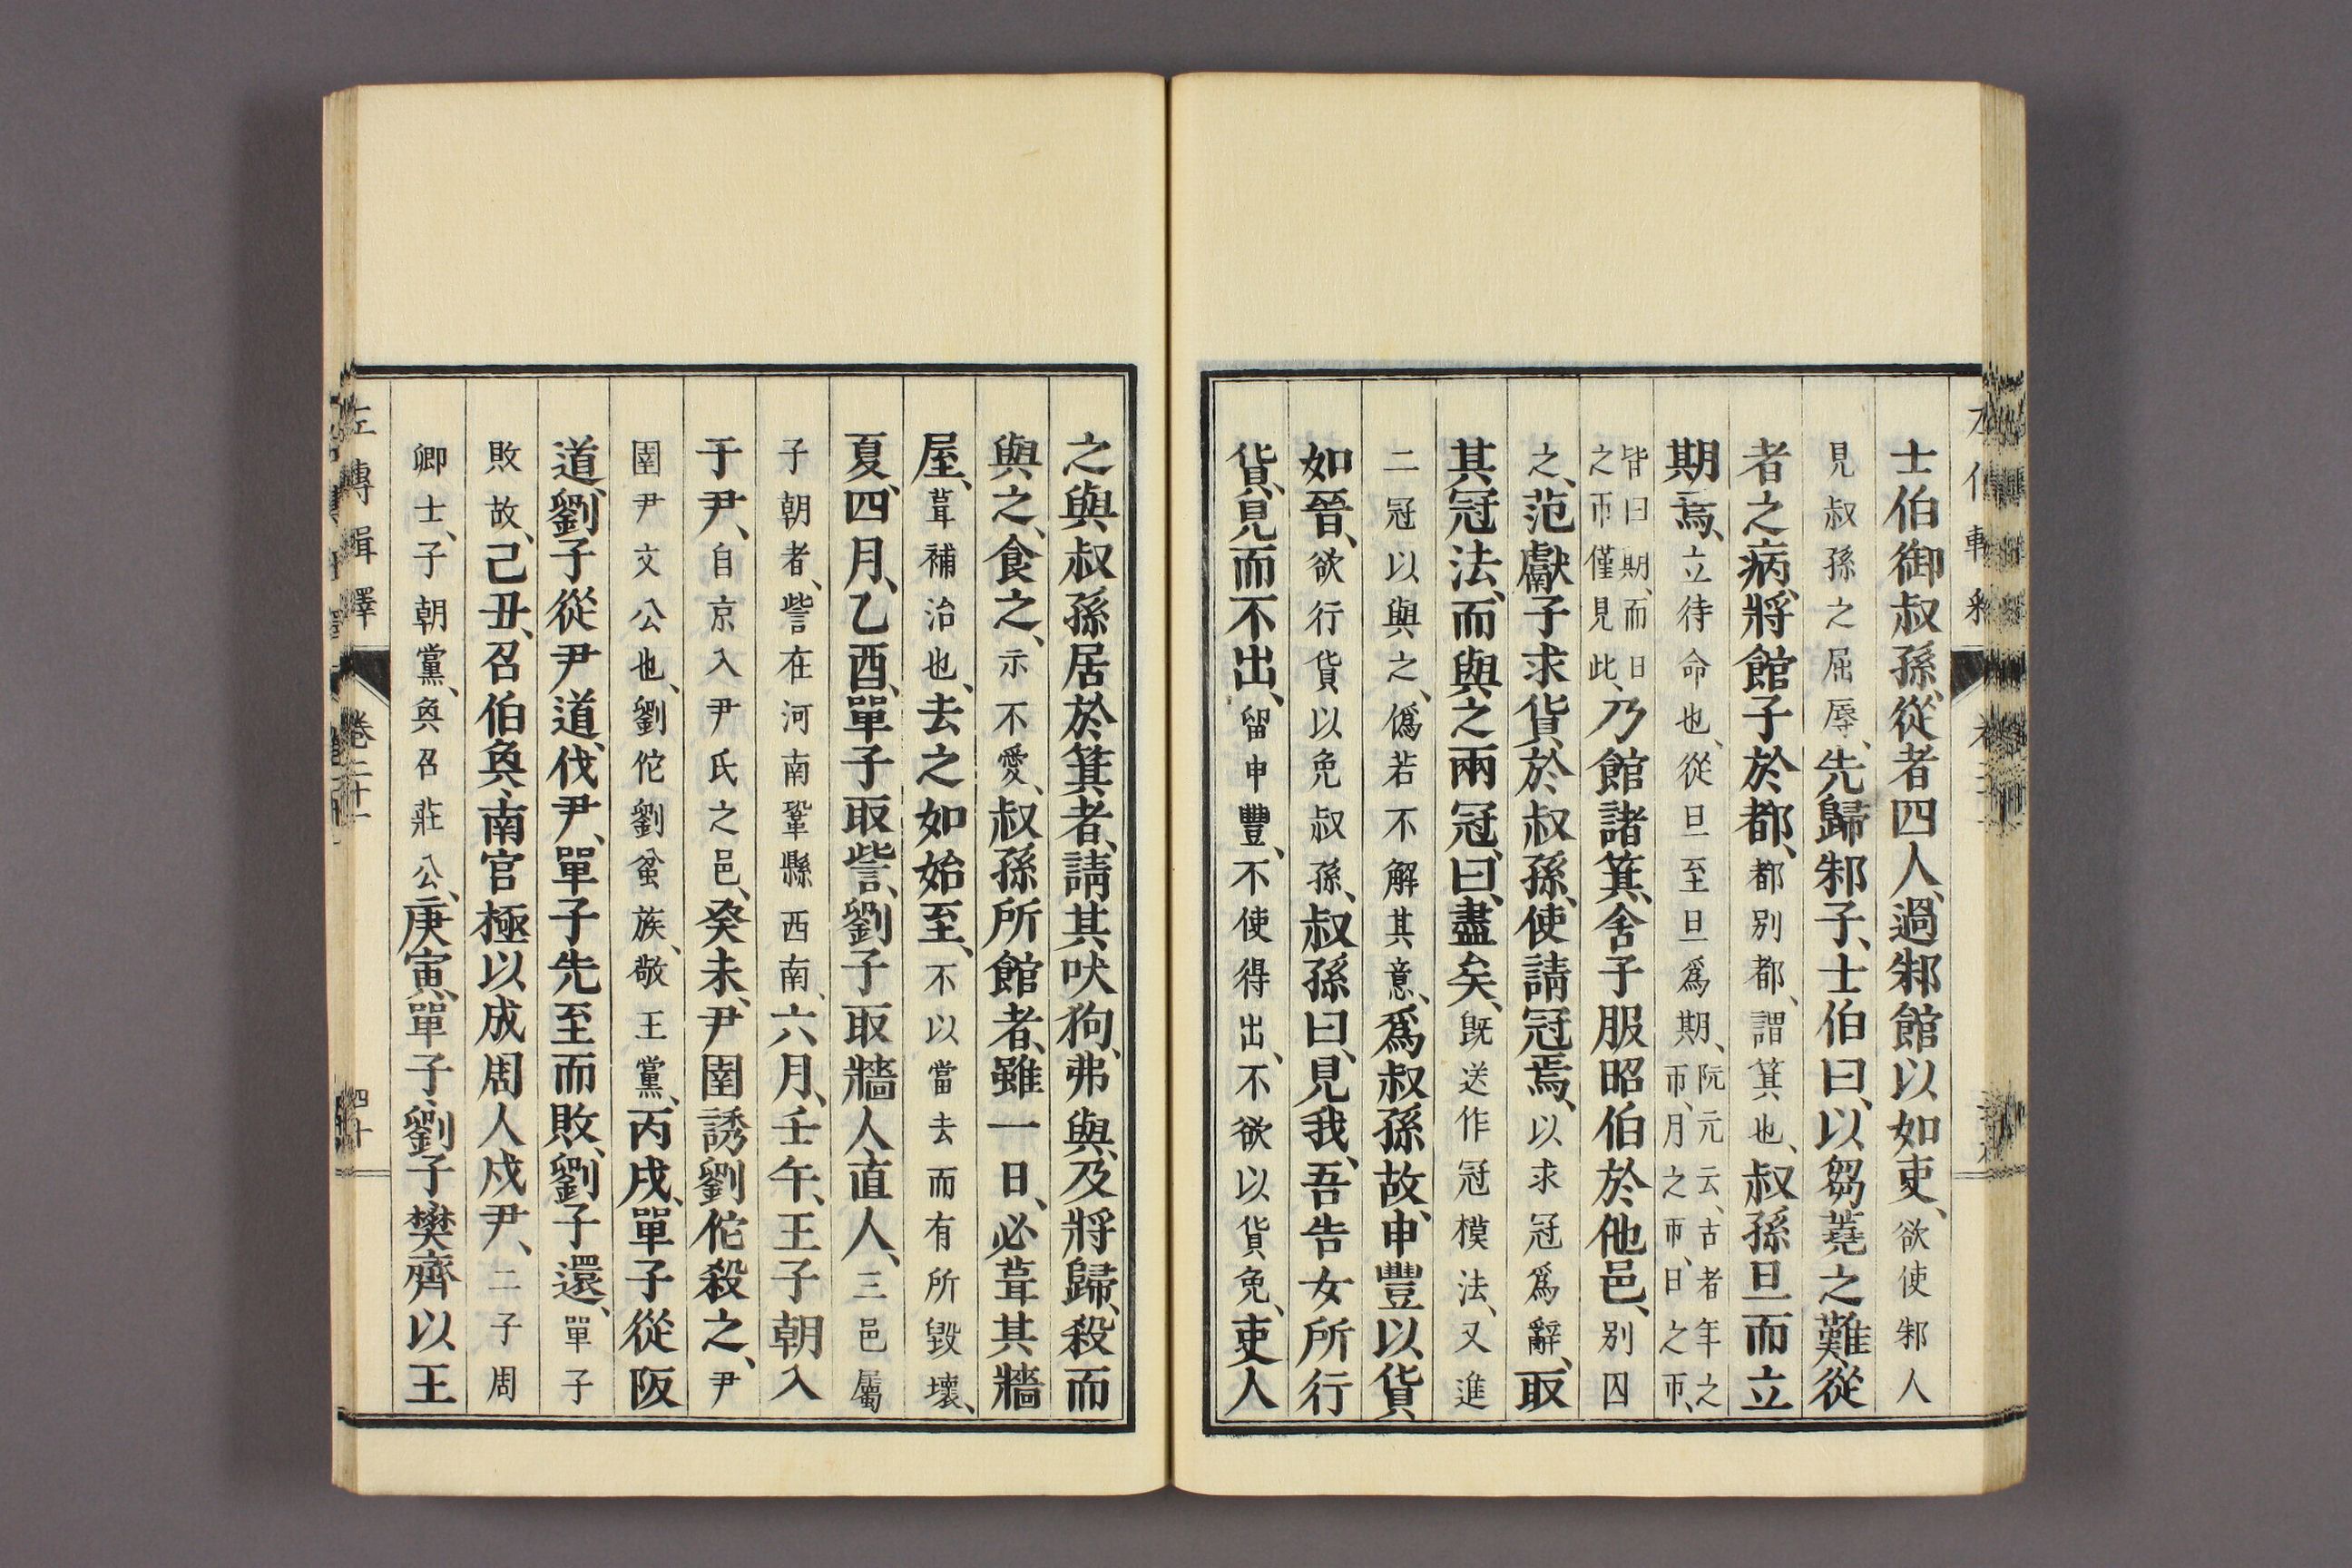 士伯御叔孫、從者四人、過邾館以如吏、欲使邾人
見叔孫之屈辱、先歸邾子、士伯曰、以芻蕘之難、從
者之病、將館子於都、都別都、謂箕也、叔孫旦而立
期焉、立待命也、從旦至旦爲期、阮元云、古者年之帀、月之帀、日之帀、
皆曰期、而日之帀僅見此、乃館諸箕、舍子服昭伯於他邑、別囚
之、范獻子求貨於叔孫、使請冠焉、以求冠爲辭、取
其冠法、而與之兩冠、曰、盡矣、旣送作冠模法、又進
二冠以與之、僞若不解其意、爲叔孫故、申豐以貨
如晉、欲行貨以免叔孫、叔孫曰、見我、吾告女所行
貨、見而不出、留申豐、不使得出、不欲以貨免、吏人
之與叔孫居於箕者、請其吠狗、弗與、及將歸、殺而
與之、食之、示不愛、叔孫所館者、雖一日、必葺其牆
屋、葺補治也、去之如始至、不以當去而有所毀壞、
夏、四月、乙酉、單子取訾、劉子取牆人直人、三邑屬
子朝者、訾在河南鞏縣西南、六月、壬午、王子朝入
于尹、自京入尹氏之邑、癸未、尹圉誘劉佗殺之、尹
圉尹文公也、劉佗劉蚠族、敬王黨、丙戌、單子從阪
道、劉子從尹道、伐尹、單子先至而敗、劉子還、單子
敗故、己丑、召伯奐、南宮極以成周人戍尹、二子周
卿士、子朝黨、奐召莊公、庚寅、單子、劉子樊齊以王
左傳輯釋 卷二十一 四十